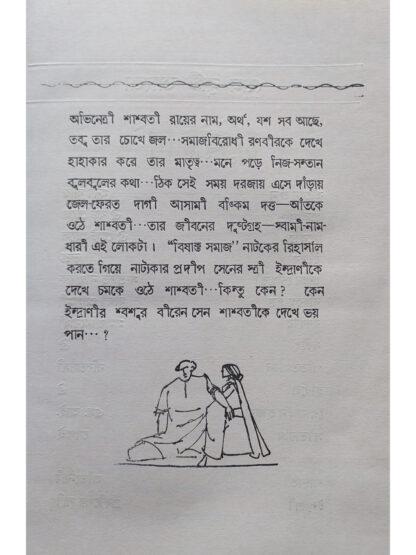 অভিনেত্রী শাশ্বতী রায়ের নাম, অর্থ, যশ সব আছে,
তবু তার চোখে জল···সমাজবিরোধী রণবীরকে দেখে
হাহাকার করে তার মাতৃত্ব···মনে পড়ে নিজ-সন্তান
বুলবুলের কথা···ঠিক সেই সময় দরজায় এসে দাঁড়ায়
জেল-ফেরত দাগী আসামী বঙ্কিম দত্ত—আঁতকে
ওঠে শাশ্বতী···তার জীবনের দুষ্টগ্রহ—স্বামী-নাম-
ধারী এই লোকটা। “বিষাক্ত সমাজ” নাটকের রিহার্সাল
করতে গিয়ে নাট্যকার প্রদীপ সেনের স্ত্রী ইন্দ্রাণীকে
দেখে চমকে ওঠে শাশ্বতী···কিন্তু কেন? কেন
ইন্দ্রাণীর শ্বশুর বীরেন সেন শাশ্বতীকে দেখে ভয়
পান···?